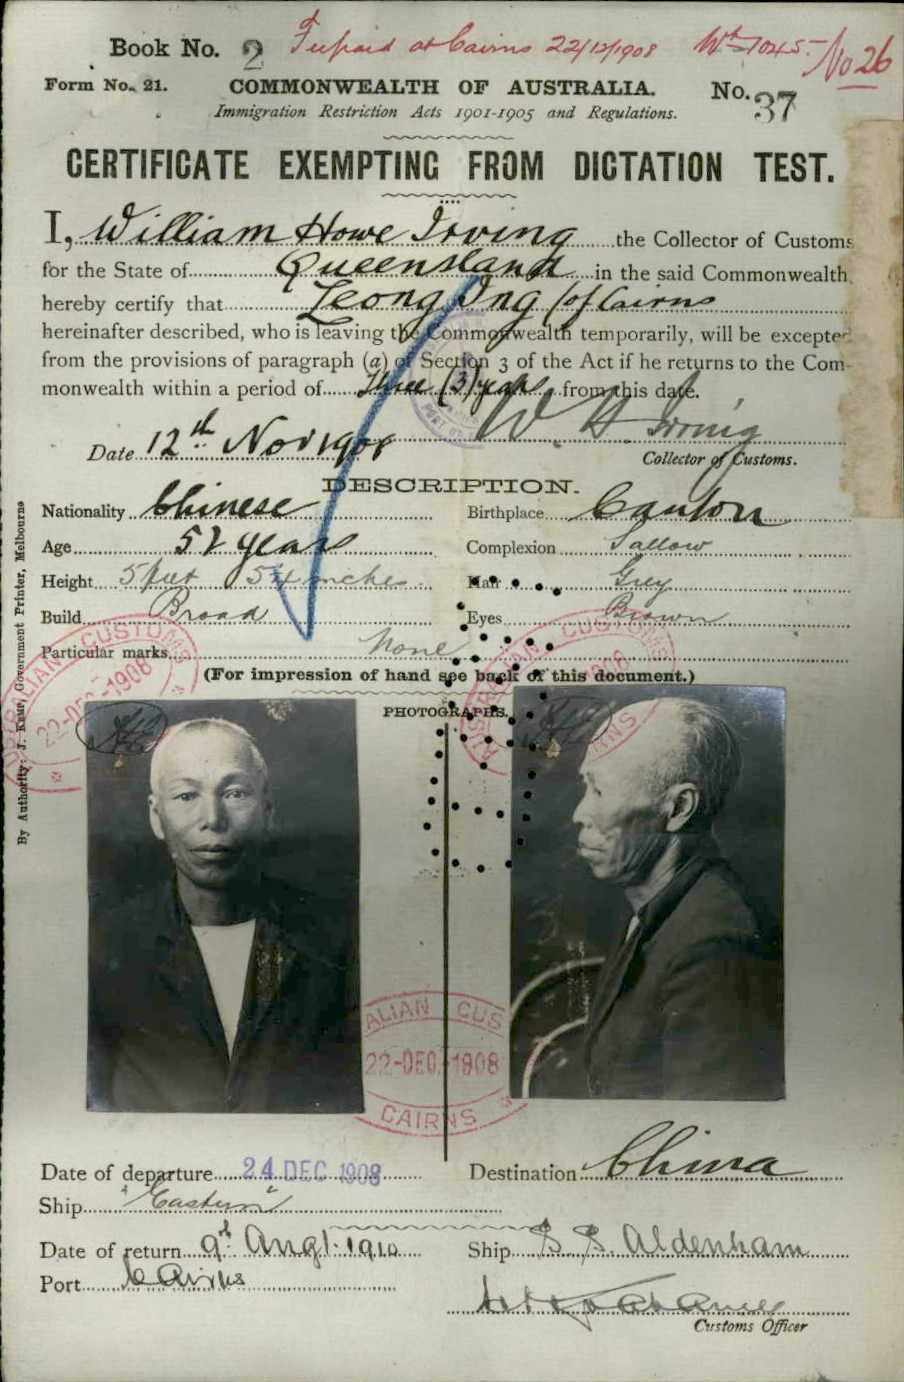 Book No. 2 Feepaid at Cairns 22/12/1908 No 26
Form No. 21. COMMONWEALTH OF AUSTRALIA. No. 37
Immigration Restriction Acts 1901-1905 and Regulations.
CERTIFICATE EXEMPTING FROM DICTATION TEST.
I, William Howe Irving the Collector of Customs
for the State of Queensland in the said Commonwealth,
hereby certify that Leong Ing (of Cairns
hereinafter described, who is leaving the Commonwealth temporarily, will be excepted
from the provisions of paragraph (a) of Section 3 of the Act if he returns to the Com-
monwealth within a period of Three (3) years from this date.
W. H. Irving
Date 12th Nov 1908
Collector of Customs.
DESCRIPTION.
Nationality Chinese Birthplace Canton
Age 52 years Complexion Sallow
Height 5 feet 5¼ inches Hair Grey
Build Broad Eyes Brown
Particular marks None
(For impression of hand see back of this document.)
PHOTOGRAPHS.
AUSTRALIAN CUSTOMS
22-DEC-1908
AUSTRALIAN CUSTOMS
1908
CAIRNS
ALIAN CUS
22-DEC.1908
CAIRNS
By Authority: J. Kemp, Government Printer, Melbourne
Date of departure 24 DEC 1908 Destination China
Ship "Eastern"
Date of return 9th Augt. 1910 Ship S. S. Aldenham
Port Cairns
Customs Officer